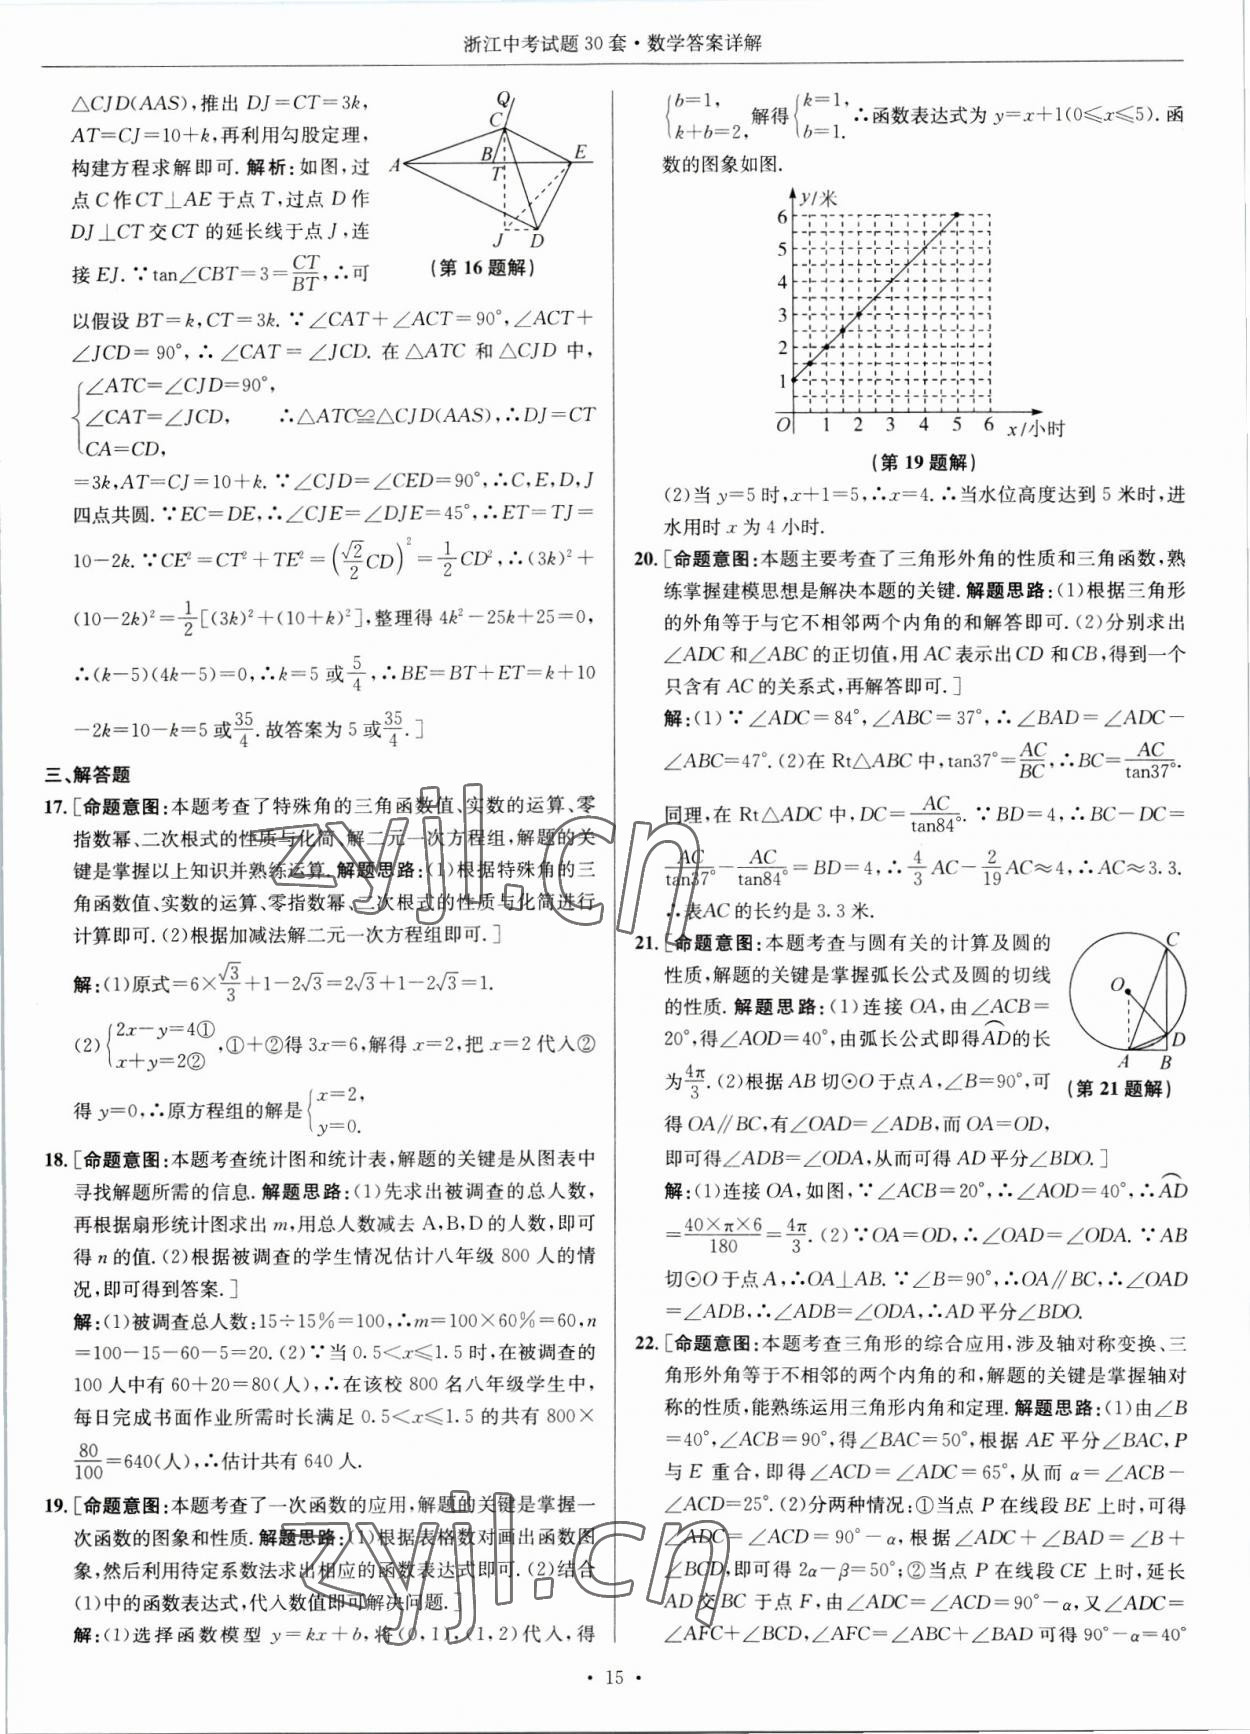 浙江中考试题30套·数学答案详解
△CJD(AAS),推出 DJ=CT=3k,
AT=CJ=10+k,再利用勾股定理,
构建方程求解即可. 解析:如图,过
点 C 作 CT⊥AE 于点 T,过点 D 作
DJ⊥CT 交 CT 的延长线于点 J,连
接 EJ. ∵tan∠CBT=3=CT/BT,∴可
Q
C
A
B
E
T
J
D
(第 16 题解)
以假设 BT=k,CT=3k. ∵∠CAT+∠ACT=90°,∠ACT+
∠JCD=90°,∴∠CAT=∠JCD. 在△ATC 和△CJD 中,
∠ATC=∠CJD=90°,
∠CAT=∠JCD, ∴△ATC≌△CJD(AAS),∴DJ=CT
CA=CD,
=3k,AT=CJ=10+k. ∵∠CJD=∠CED=90°,∴C,E,D,J
四点共圆. ∵EC=DE,∴∠CJE=∠DJE=45°,∴ET=TJ=
10-2k. ∵CE²=CT²+TE²=(√2/2 CD)²=1/2 CD²,∴(3k)²+
(10-2k)²=1/2[(3k)²+(10+k)²],整理得 4k²-25k+25=0,
∴(k-5)(4k-5)=0,∴k=5 或 5/4,∴BE=BT+ET=k+10
-2k=10-k=5 或 35/4. 故答案为 5 或 35/4.]
三、解答题
17. [命题意图:本题考查了特殊角的三角函数值、实数的运算、零
指数幂、二次根式的性质与化简、解二元一次方程组,解题的关
键是掌握以上知识并熟练运算. 解题思路:(1)根据特殊角的三
角函数值、实数的运算、零指数幂、二次根式的性质与化简进行
计算即可. (2)根据加减法解二元一次方程组即可.]
解:(1)原式=6×√3/3+1-2√3=2√3+1-2√3=1.
(2){2x-y=4① x+y=2②,①+②得 3x=6,解得 x=2,把 x=2 代入②
得 y=0,∴原方程组的解是{x=2, y=0.
18. [命题意图:本题考查统计图和统计表,解题的关键是从图表中
寻找解题所需的信息. 解题思路:(1)先求出被调查的总人数,
再根据扇形统计图求出 m,用总人数减去 A,B,D 的人数,即可
得 n 的值. (2)根据被调查的学生情况估计八年级 800 人的情
况,即可得到答案.]
解:(1)被调查总人数:15÷15%=100,∴m=100×60%=60,n
=100-15-60-5=20. (2)∵当 0.5<x≤1.5 时,在被调查的
100 人中有 60+20=80(人),∴在该校 800 名八年级学生中,
每日完成书面作业所需时长满足 0.5<x≤1.5 的共有 800×
80/100=640(人),∴估计共有 640 人.
19. [命题意图:本题考查了一次函数的应用,解题的关键是掌握一
次函数的图象和性质. 解题思路:(1)根据表格数对画出函数图
象,然后利用待定系数法求出相应的函数表达式即可. (2)结合
(1)中的函数表达式,代入数值即可解决问题.]
解:(1)选择函数模型 y=kx+b,将(0,1),(1,2)代入,得
{b=1, k+b=2, 解得{k=1, b=1. ∴函数表达式为 y=x+1(0≤x≤5). 函
数的图象如图.
y/米
6
5
4
3
2
1
O 1 2 3 4 5 6 x/小时
(第 19 题解)
(2)当 y=5 时,x+1=5,∴x=4. ∴当水位高度达到 5 米时,进
水用时 x 为 4 小时.
20. [命题意图:本题主要考查了三角形外角的性质和三角函数,熟
练掌握建模思想是解决本题的关键. 解题思路:(1)根据三角形
的外角等于与它不相邻两个内角的和解答即可. (2)分别求出
∠ADC 和∠ABC 的正切值,用 AC 表示出 CD 和 CB,得到一个
只含有 AC 的关系式,再解答即可.]
解:(1)∵∠ADC=84°,∠ABC=37°,∴∠BAD=∠ADC-
∠ABC=47°. (2)在 Rt△ABC 中,tan37°=AC/BC,∴BC=AC/tan37°.
同理,在 Rt△ADC 中,DC=AC/tan84°. ∵BD=4,∴BC-DC=
AC/tan37°-AC/tan84°=BD=4,∴4/3 AC-2/19 AC≈4,∴AC≈3.3.
∴表AC的长约是 3.3 米.
21. [命题意图:本题考查与圆有关的计算及圆的
性质,解题的关键是掌握弧长公式及圆的切线
的性质. 解题思路:(1)连接 OA,由∠ACB=
20°,得∠AOD=40°,由弧长公式即得AD⌒的长
为4π/3. (2)根据 AB 切⊙O 于点 A,∠B=90°,可
得 OA∥BC,有∠OAD=∠ADB,而 OA=OD,
即可得∠ADB=∠ODA,从而可得 AD 平分∠BDO.]
C
O
D
A
B
(第 21 题解)
解:(1)连接 OA,如图,∵∠ACB=20°,∴∠AOD=40°,∴AD⌒
=40×π×6/180=4π/3. (2)∵OA=OD,∴∠OAD=∠ODA. ∵AB
切⊙O 于点 A,∴OA⊥AB. ∵∠B=90°,∴OA∥BC,∴∠OAD
=∠ADB,∴∠ADB=∠ODA,∴AD 平分∠BDO.
22. [命题意图:本题考查三角形的综合应用,涉及轴对称变换、三
角形外角等于不相邻的两个内角的和,解题的关键是掌握轴对
称的性质,能熟练运用三角形内角和定理. 解题思路:(1)由∠B
=40°,∠ACB=90°,得∠BAC=50°,根据 AE 平分∠BAC,P
与 E 重合,即得∠ACD=∠ADC=65°,从而 α=∠ACB-
∠ACD=25°. (2)分两种情况:①当点 P 在线段 BE 上时,可得
∠ADC=∠ACD=90°-α,根据∠ADC+∠BAD=∠B+
∠BCD,即可得 2α-β=50°;②当点 P 在线段 CE 上时,延长
AD 交 BC 于点 F,由∠ADC=∠ACD=90°-α,又∠ADC=
∠AFC+∠BCD,∠AFC=∠ABC+∠BAD 可得 90°-α=40°
·15·
zyjl.cn
zyjl.cn